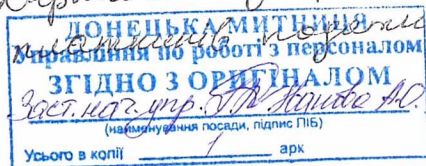 ДОНЕЦЬКА МИТНИЦЯ
Управління по роботі з персоналом
ЗГІДНО З ОРИГІНАЛОМ
Заст. нач. упр. А.О.
(найменування посади, підпис ПІБ)
Усього в копії 1 арк